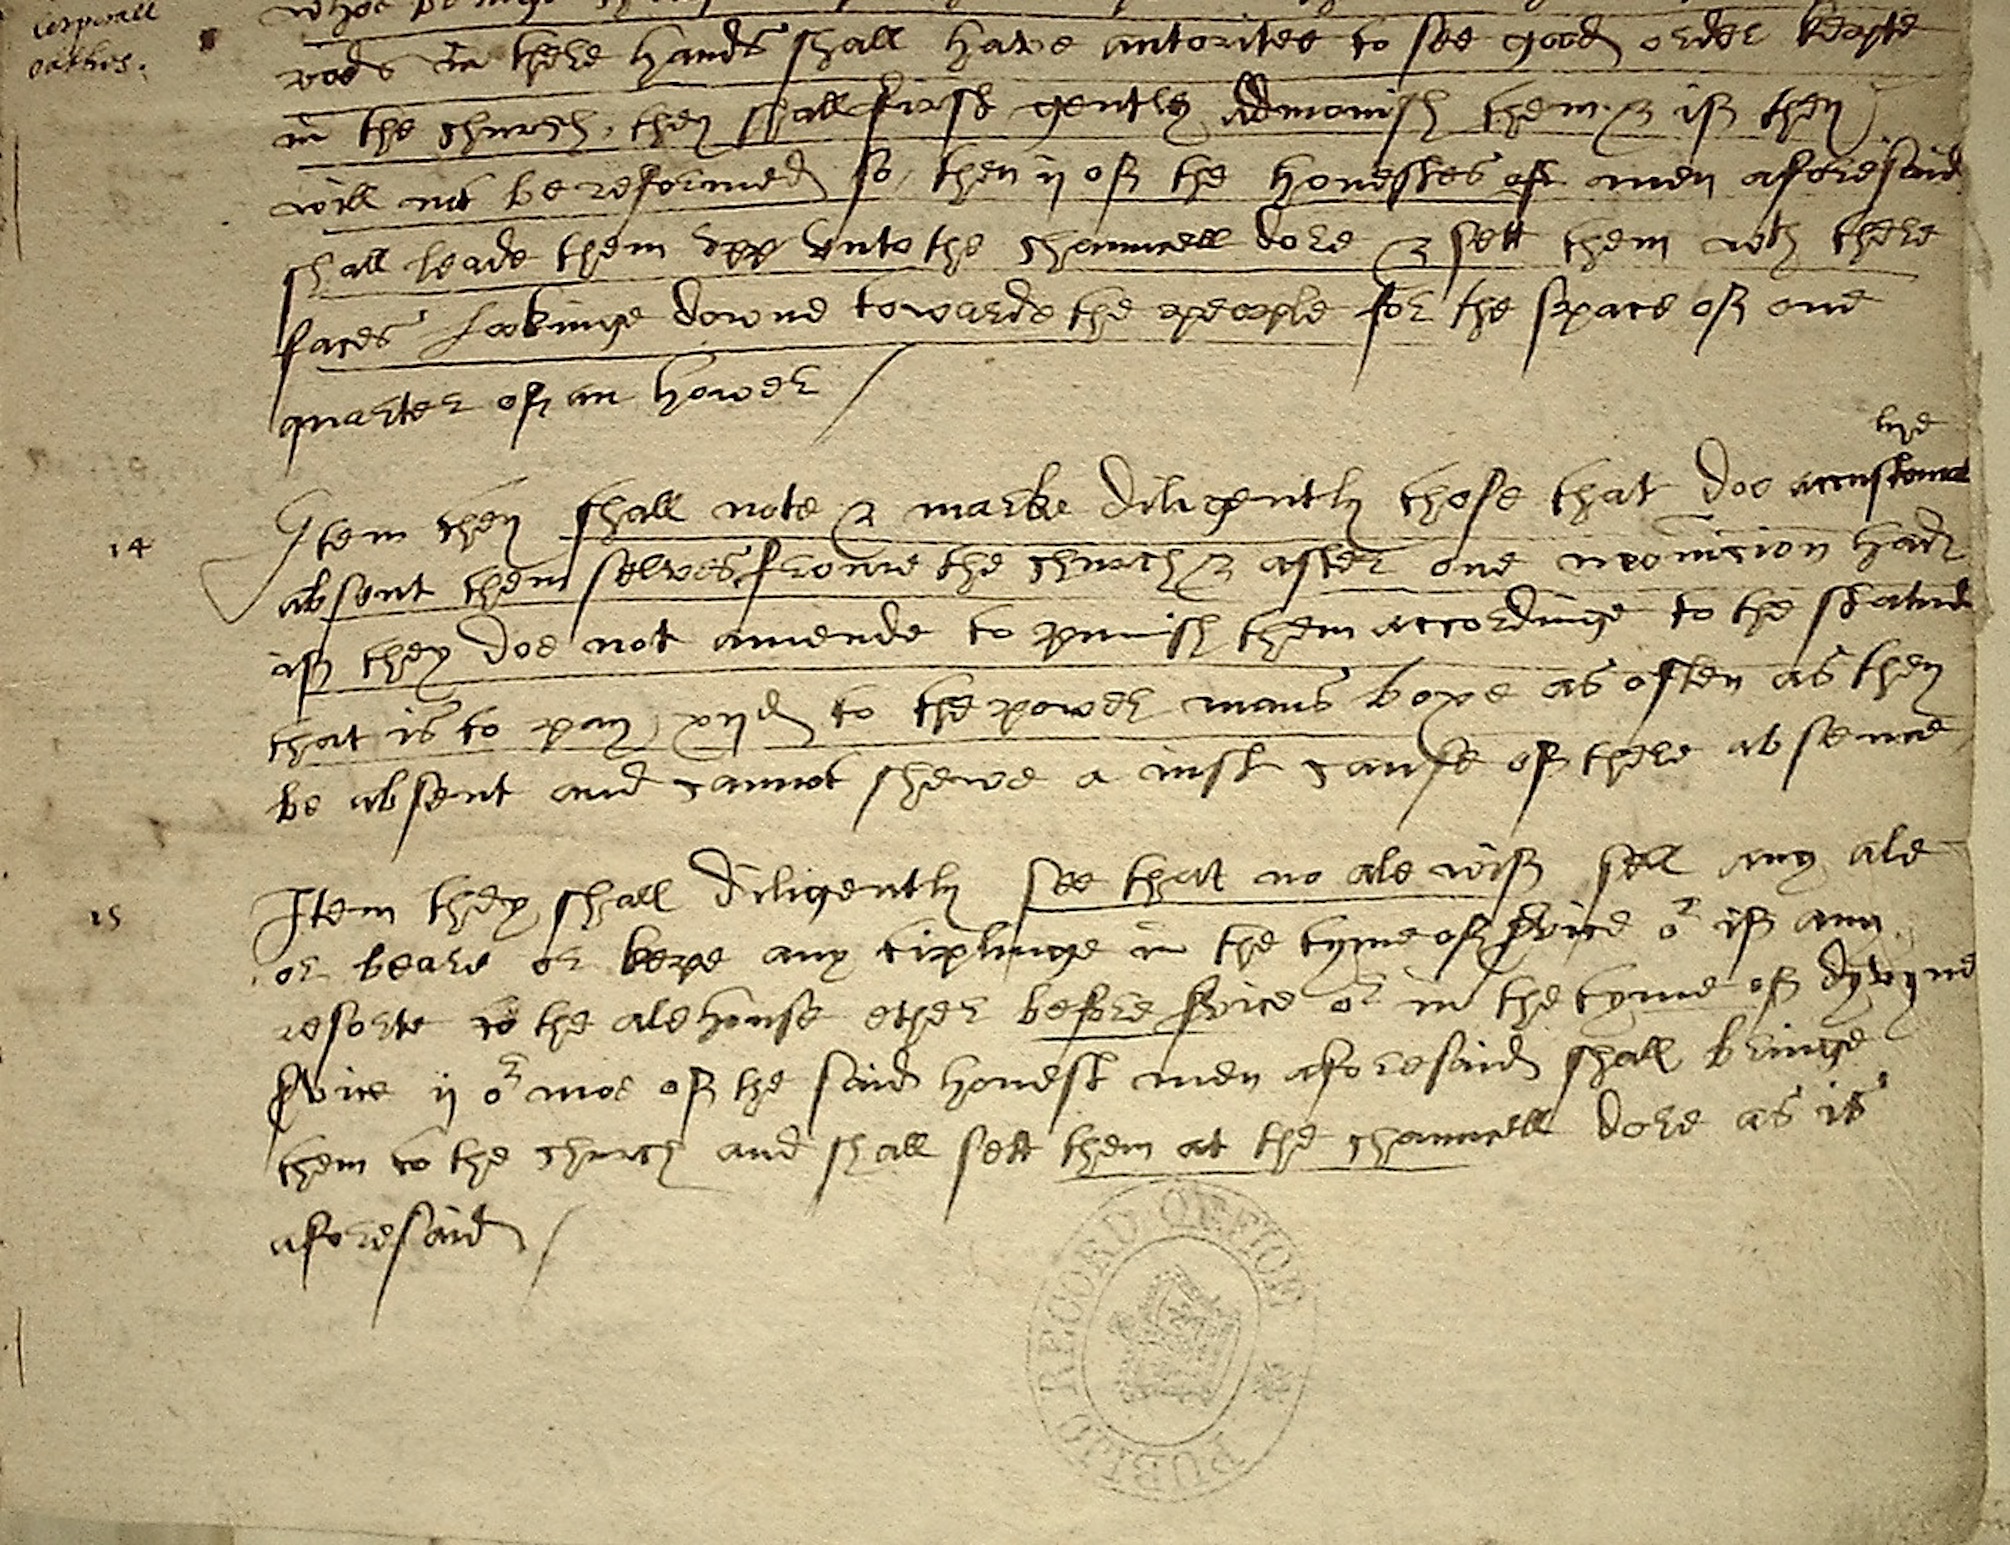 corporall
oathes.
rods in there hands shall have autoritee to see good order keapte
in the church, they shall first gently admonish them & if they
will not be reformed so, then ij of the honestes of men aforesaid
shall leade them upp unto the chauncell dore & sett them wth there
faces lookinge downe towards the people for the space of one
quarter of an hower /
14 Item they shall note & marke diligently those that doe accustomab
lye
absent them selves frome the church & after one monicion hade
if they doe not amende to punish them accordinge to the statute
that is to pay xijd to the power mans boxe as often as they
be absent and cannot shewe a iust cause of there absence
15 Item they shall diligently see that no ale wif sell any ale
or beare or kepe any tiplinge in the tyme of service or if any
resorte to the alehouse ether before service or in the tyme of dyvyne
service ij or moe of the said honest men aforesaid shall bringe
them to the church and shall sett them at the chauncell dore as is
aforesaid /
PUBLIC RECORD OFFICE